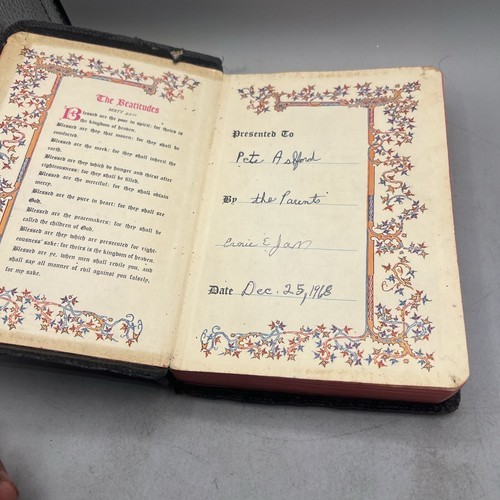 The Beatitudes
Blessed are the poor in spirit: for theirs is
the kingdom of heaven.
Blessed are they that mourn: for they shall be
comforted.
Blessed are the meek: for they shall inherit the
earth.
Blessed are they which do hunger and thirst after
righteousness: for they shall be filled.
Blessed are the merciful: for they shall obtain
mercy.
Blessed are the pure in heart: for they shall see
God.
Blessed are the peacemakers: for they shall be
called the children of God.
Blessed are they which are persecuted for right-
eousness' sake: for theirs is the kingdom of heaven.
Blessed are ye, when men shall revile you, and
shall say all manner of evil against you falsely,
for my sake.
Presented To
Pete
By the Parents
& Jan
Date Dec. 25, 1968